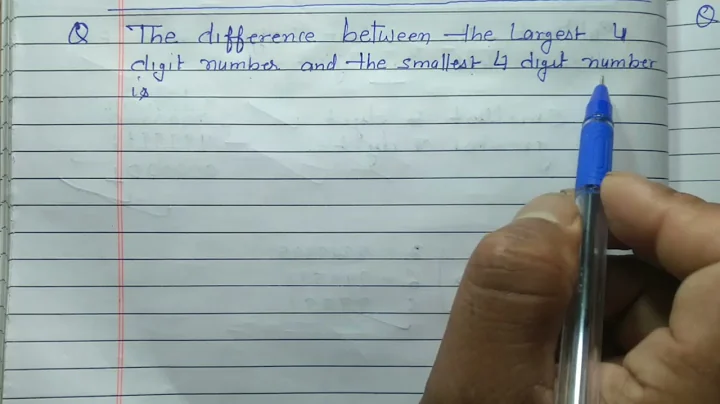 Q The difference between the Largest 4
digit number and the smallest 4 digit number
is
Q